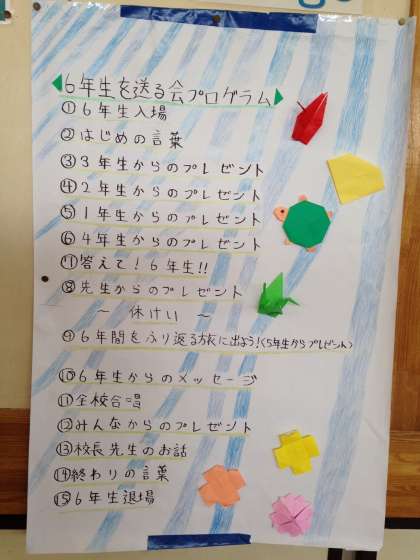 6年生を送る会プログラム
①6年生入場
②はじめの言葉
③3年生からのプレゼント
④2年生からのプレゼント
⑤1年生からのプレゼント
⑥4年生からのプレゼント
⑦答えて!6年生!!
⑧先生からのプレゼント
～ 休けい ～
⑨6年間をふり返る旅に出よう!<5年生からプレゼント>
⑩6年生からのメッセージ
⑪全校合唱
⑫みんなからのプレゼント
⑬校長先生のお話
⑭終わりの言葉
⑮6年生退場